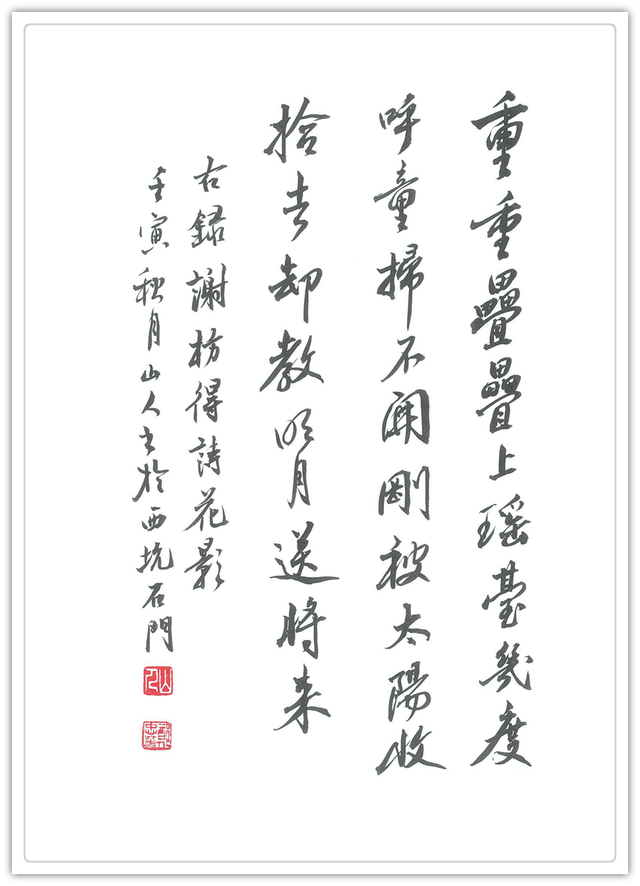 重重疊疊上瑶臺幾度
呼童掃不開剛被太陽收
拾去却教明月送將来
右録謝枋得詩花影
壬寅秋月山人書於西坑石門
山人